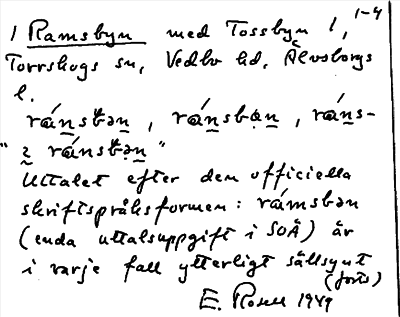 1-4
1 Ramsbyn med Tossbyn 1,
Torrskogs sn, Vedbo hd, Älvsborgs
l.
ránsbən, ránsbən, ráns-
" ránsbən "
Uttalet efter den officiella
skriftspråksformen: rámsbən
(enda uttalsuppgift i SOÄ) är
i varje fall ytterligt sällsynt
(forts)
E. Rosell 1949